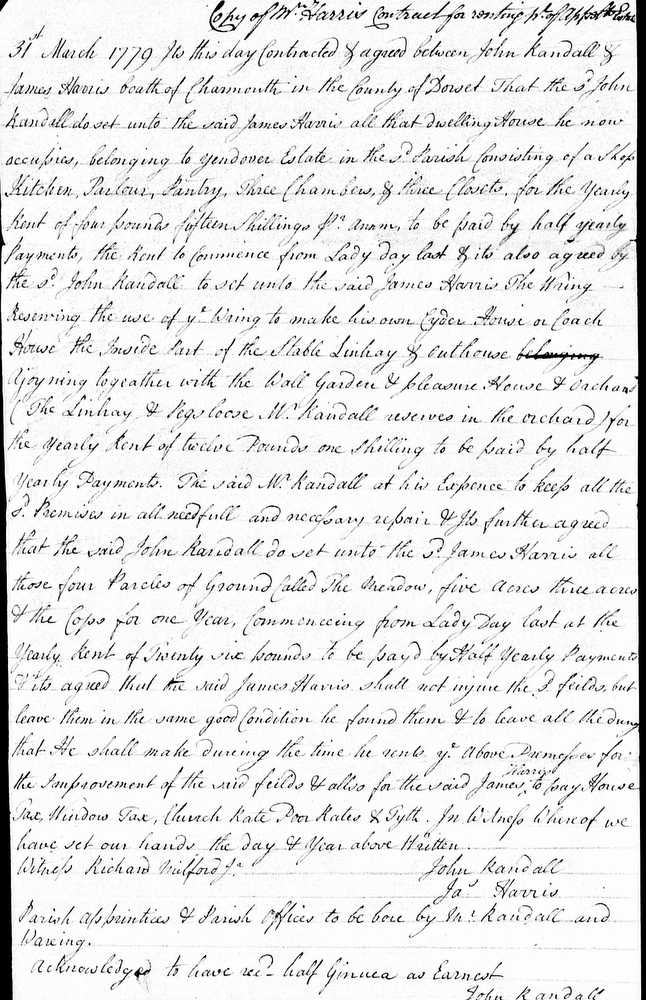 Copy of Mr. Harris Contract for renting pt. of Appr
31st March 1779 Its this day Contracted & agreed between John Randall &
James Harris boath of Charmouth in the County of Dorset That the sd. John
Randall do set unto the said James Harris all that dwelling House he now
occupies, belonging to Yendover Estate in the sd. Parish Consisting of a Shop
Kitchen, Parlour, Pantry, Three Chambers, & three Closets, for the Yearly
Rent of four pounds fifteen Shillings pr. annm, to be paid by half yearly
Payments, the Rent to Commence from Lady day last & its also agreed by
the sd. John Randall to set unto the said James Harris The Wring
Reserving the use of ye. Wring to make his own Cyder House or Coach
House the Inside Part of the Stable Linhay & outhouse belonging
Ajoyning togeather with the Wall Garden & pleasure House & Orchard
(The Linhay & Pegsloose Mr. Randall reserves in the orchard) for
the Yearly Rent of twelve Pounds one shilling to be paid by half
Yearly Payments. The said Mr. Randall at his Expence to keep all the
sd. Premises in all needfull and necessary repair & Its further agreed
that the said John Randall do set unto the sd. James Harris all
those four Parcles of Ground Called The Meadow, five Acres three acres
& the Cops for one Year, Commenceing from Lady Day last at the
Yearly Rent of Twenty six pounds to be payd by Half Yearly Payments
& its agreed that the said James Harris shall not injure the sd. feilds, but
leave them in the same good Condition he found them & to leave all the dung
that He shall make dureing the time he rents ye. Above Premesses for
the Improvement of the said feilds & allso for the said James Harris to pay House
Tax, Window Tax, Church Rate Poor Rates & Tyth. In Witness Whereof we
have set our hands the day & Year above Written.
Witness Richard Milford Jr. John Randall
Jas. Harris
Parish Apprintices & Parish Offices to be bore by Mr. Randall and
Waring.
Acknowledged to have recd. half Ginuea as Earnest
John Randall